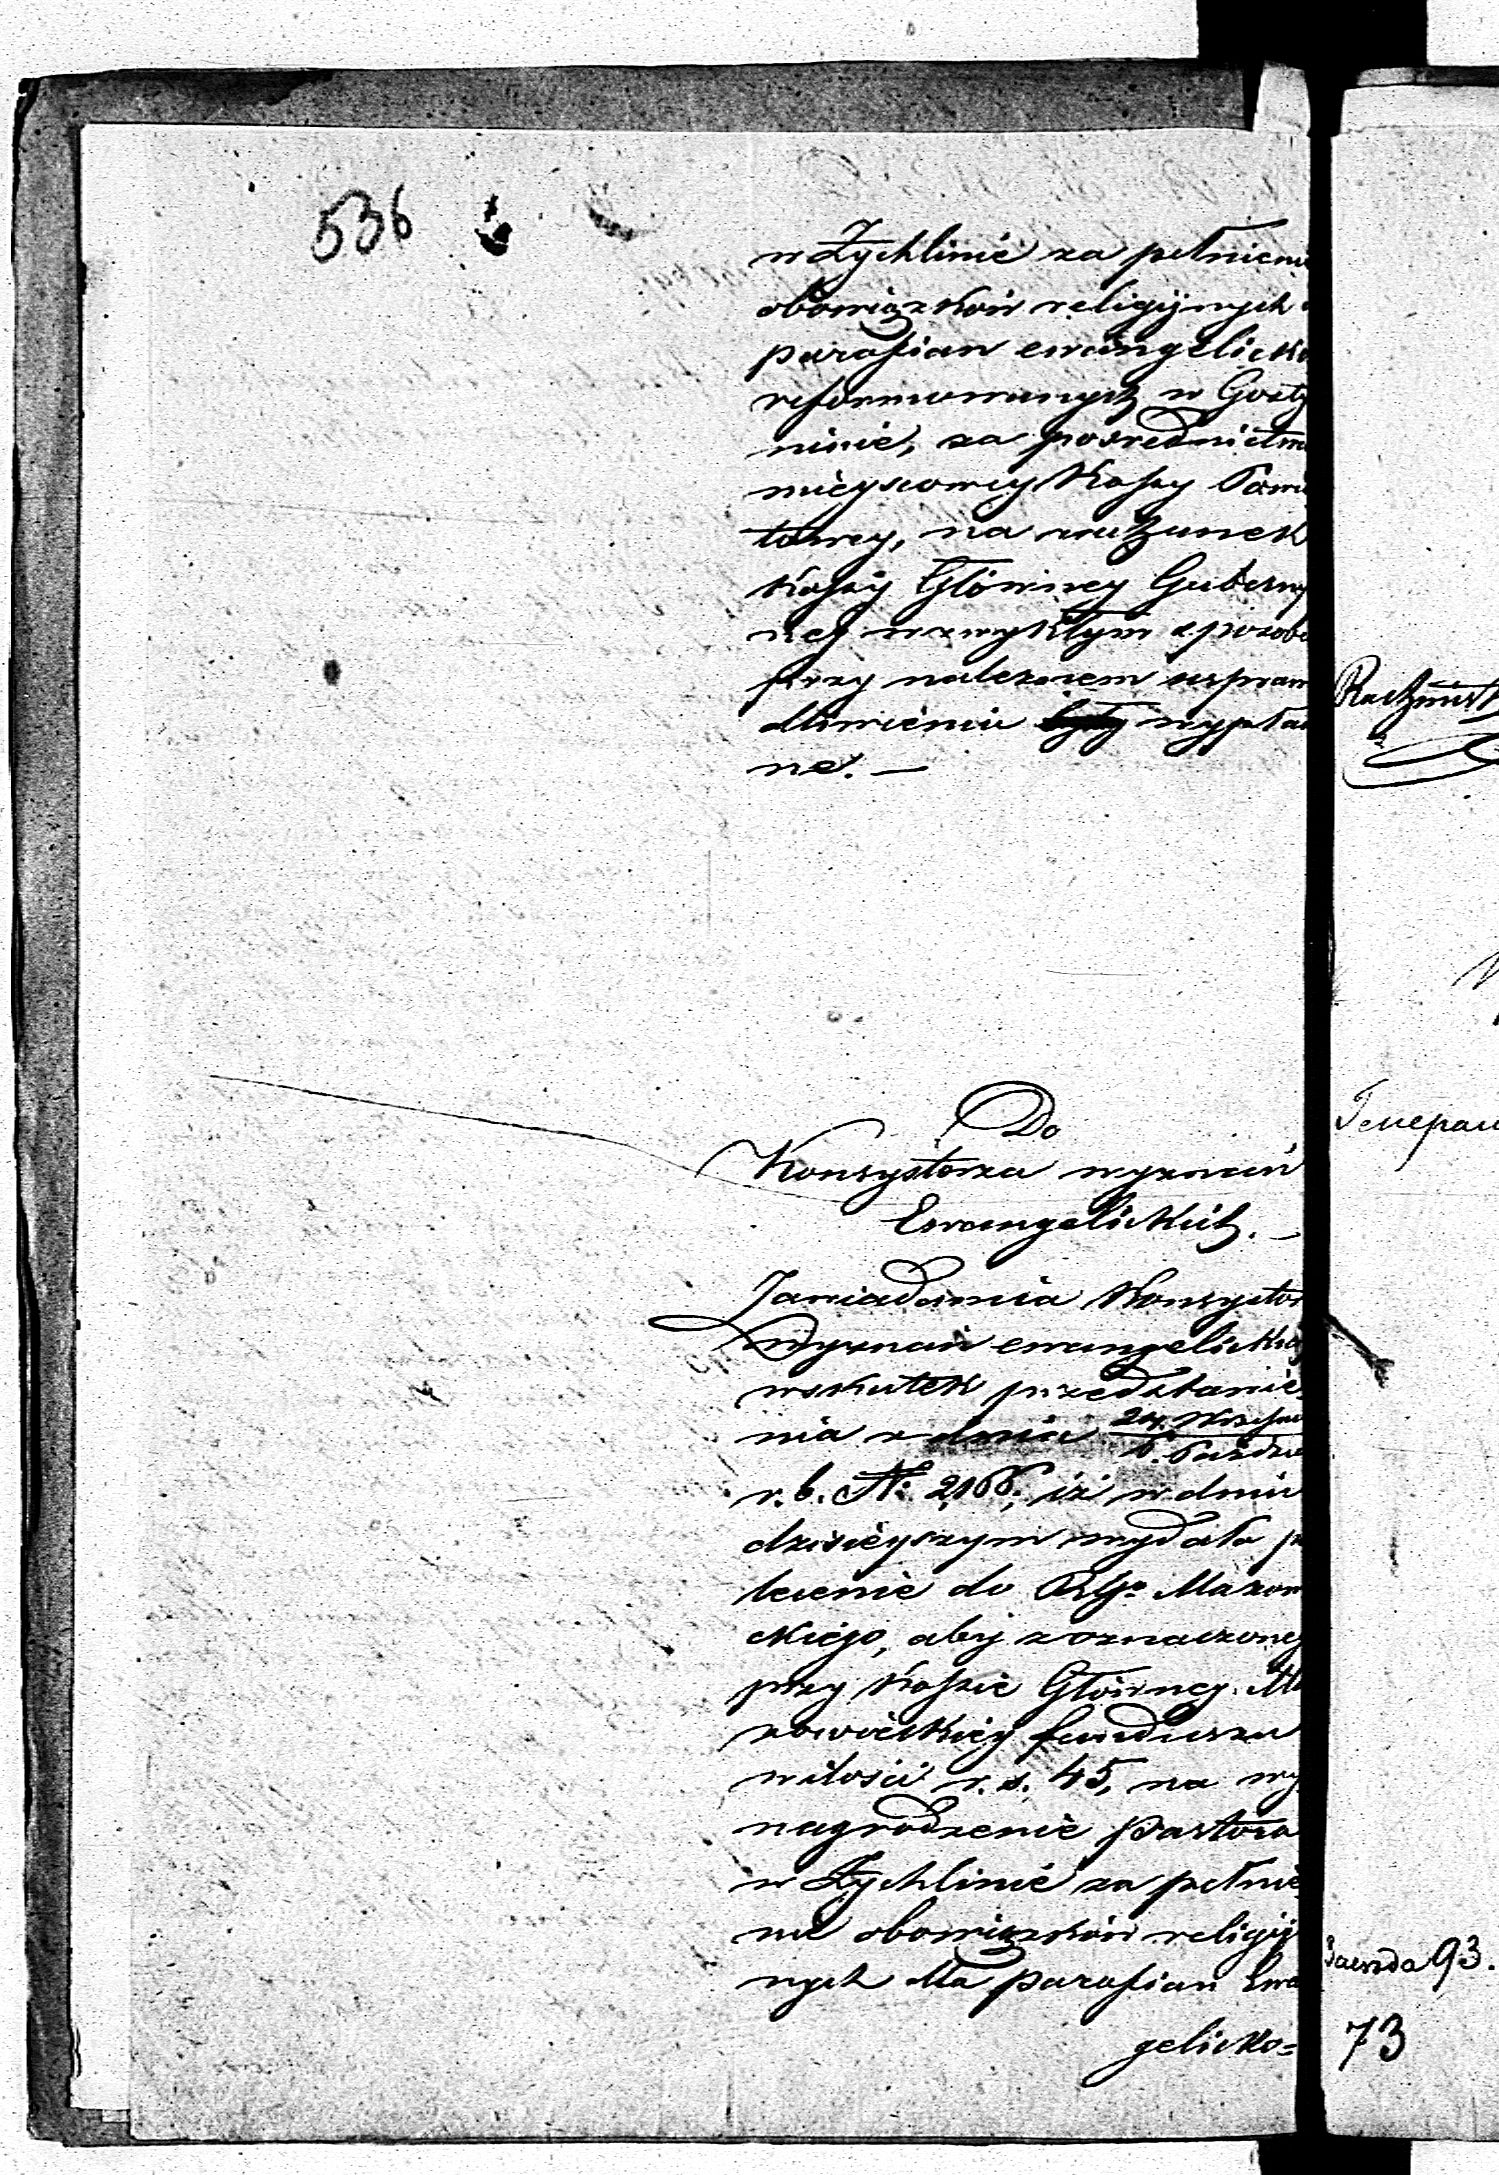 536
w Żychlinie za pełnieni
obowiązków religijnych
parafian ewangelicko
reformowanych w Gosty
ninie, za pośrednictwe
mieyscowey Kassy Powia
towey, na rachunek
Kassy Główney Guberny
ney w zwykłym sposobi
przy należnem uspraw
dliwieniu były wypłac
ne. —
Do
Konsystorza wyznań
Ewangelickich. —
Zawiadamia Konsystor
Wyznań ewangelickich
wskutek przedstawie
nia z dnia 24. Wrześni
6. Paździe
r. b. N: 2166, iż w dniu
dzisieyszym wydała po
lecenie do RGo Mazow
ckiego, aby z oznaczonego
przy Kassie Główney Ma
zowieckiey funduszu
w ilości r. s. 45, na wy
nagrodzenie Pastora
w Żychlinie za pełnie
nie obowiązków religij
nych dla parafian Ewa
gelicko=
Rachmistrz
Генерал
93.
73